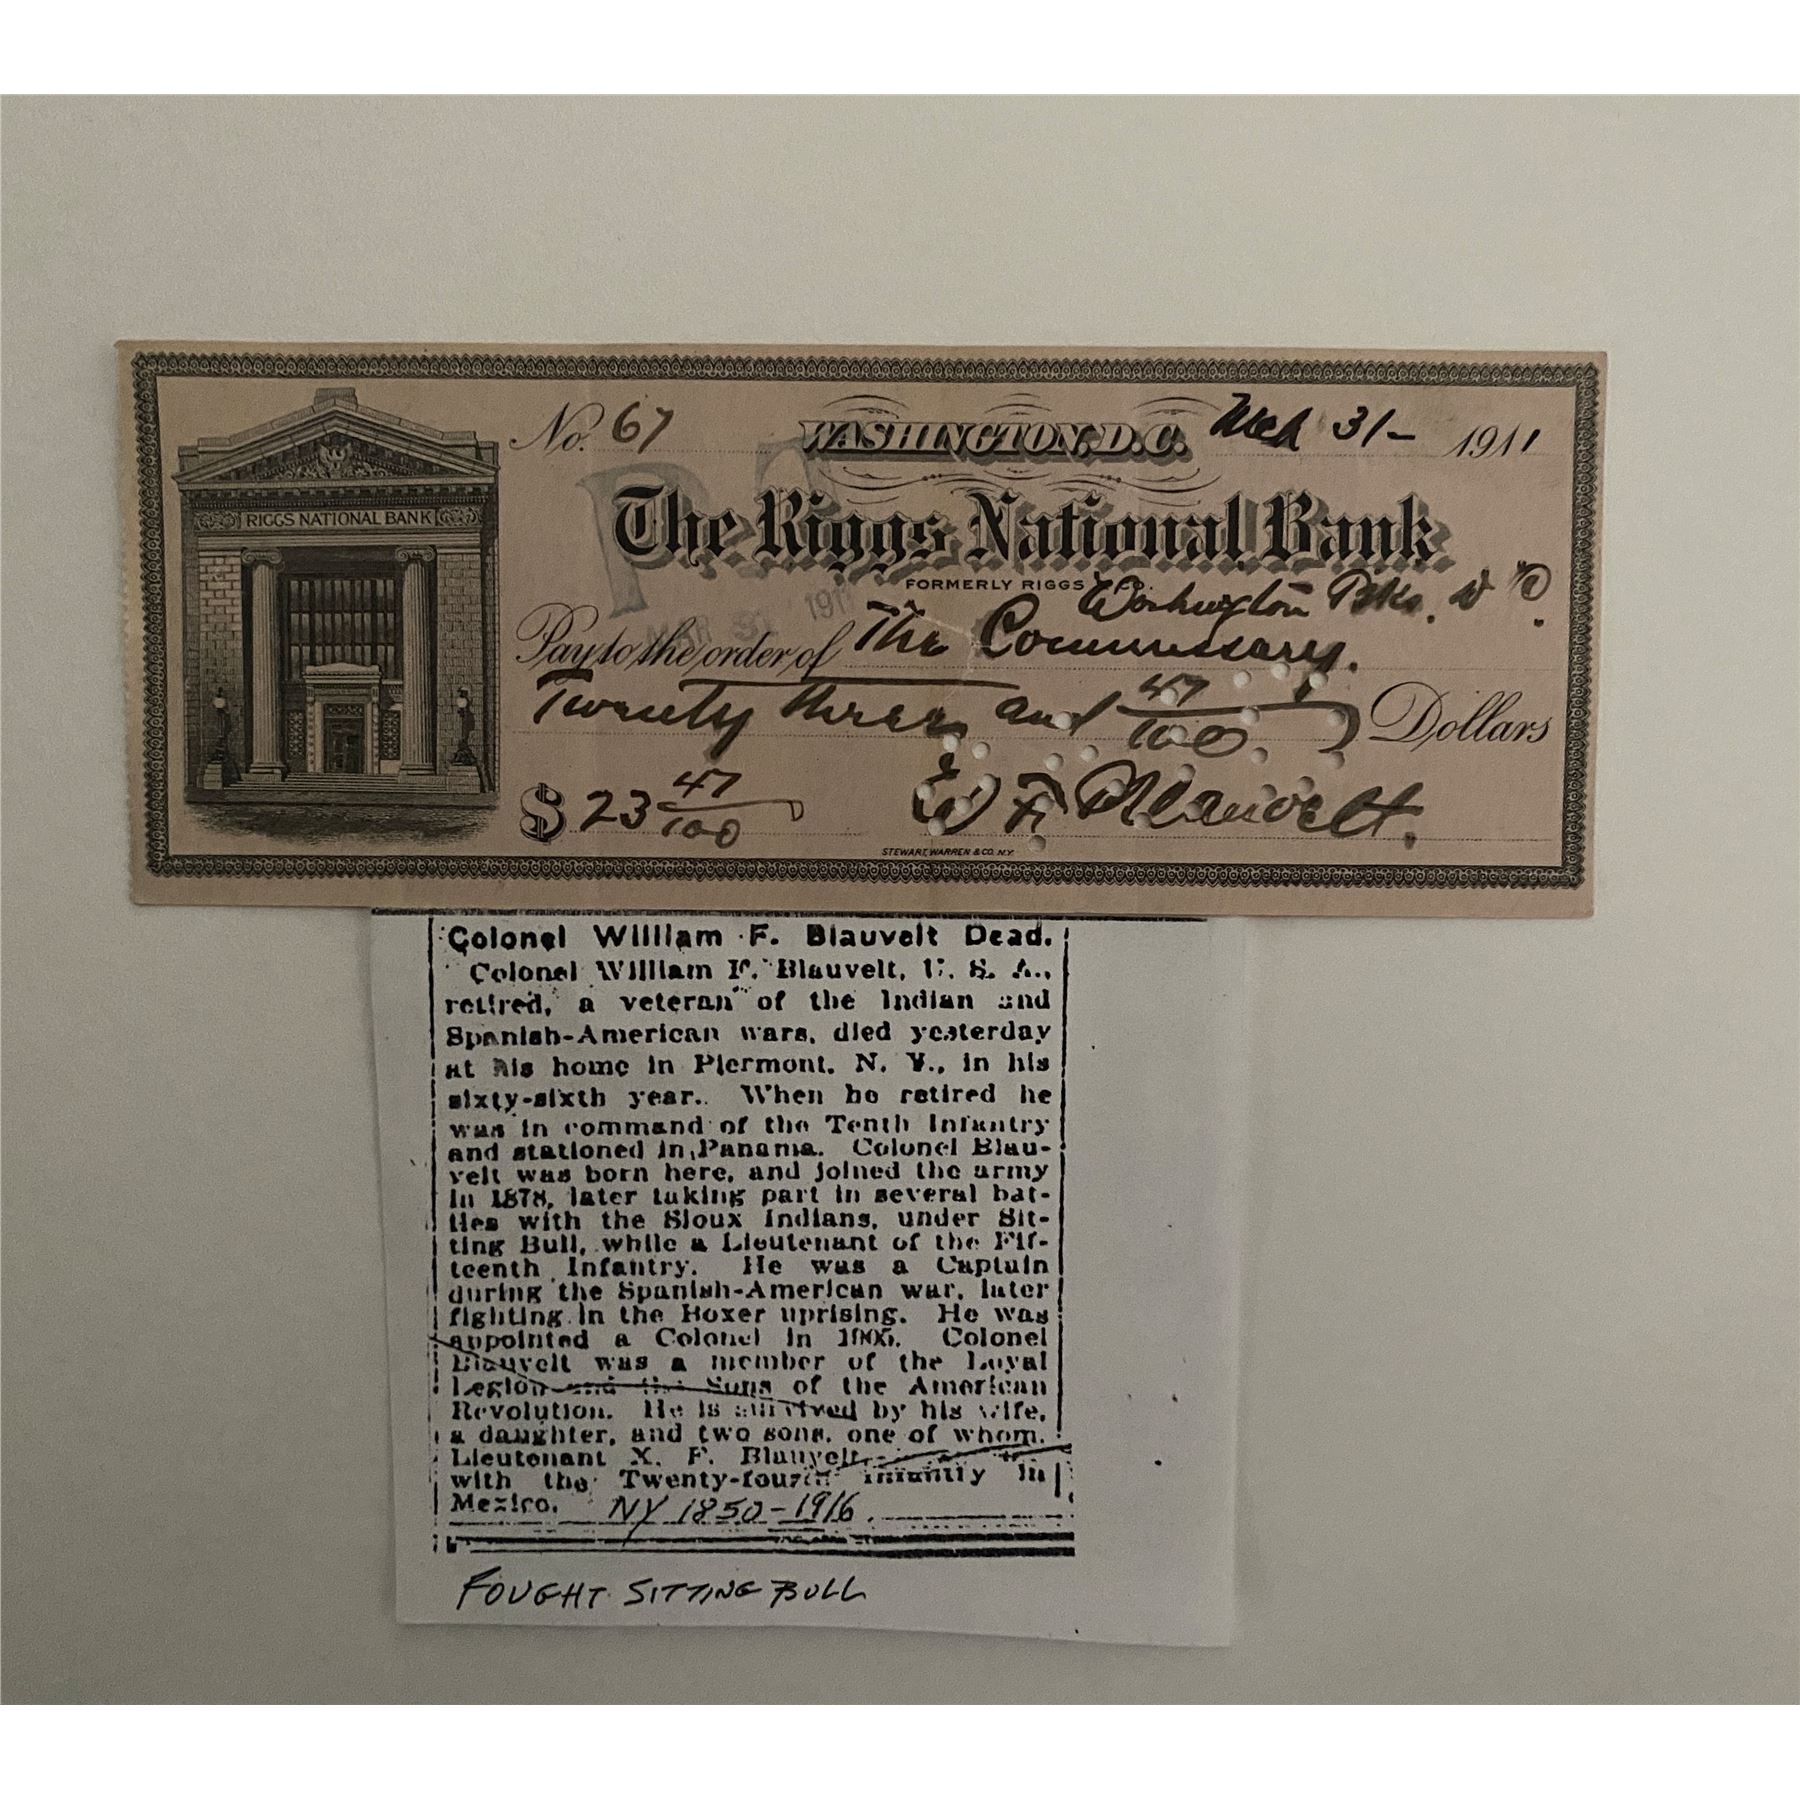 No. 67 WASHINGTON, D.C. Mch 31- 1911
RIGGS NATIONAL BANK
The Riggs National Bank
FORMERLY RIGGS & CO.
MAR 31 191
Washington Bks. D C.
Pay to the order of The Commissary.
Twenty three and 47/100 Dollars
$ 23 47/100 W F Blauvelt.
STEWART, WARREN & CO. N.Y.
Colonel William F. Blauvelt Dead.
Colonel William F. Blauvelt, U. S. A.,
retired, a veteran of the Indian and
Spanish-American wars, died yesterday
at his home in Piermont, N. Y., in his
sixty-sixth year. When he retired he
was in command of the Tenth Infantry
and stationed in Panama. Colonel Blau-
velt was born here, and joined the army
in 1878, later taking part in several bat-
tles with the Sioux Indians, under Sit-
ting Bull, while a Lieutenant of the Fif-
teenth Infantry. He was a Captain
during the Spanish-American war, later
fighting in the Boxer uprising. He was
appointed a Colonel in Colonel
Blauvelt was a member of the Loyal
Legion and the Sons of the American
Revolution. He is survived by his wife,
a daughter, and two sons, one of whom,
Lieutenant X. F. Blauvelt,
with the Twenty-fourth Infantry in
Mexico. NY 1850-1916.
FOUGHT SITTING BULL